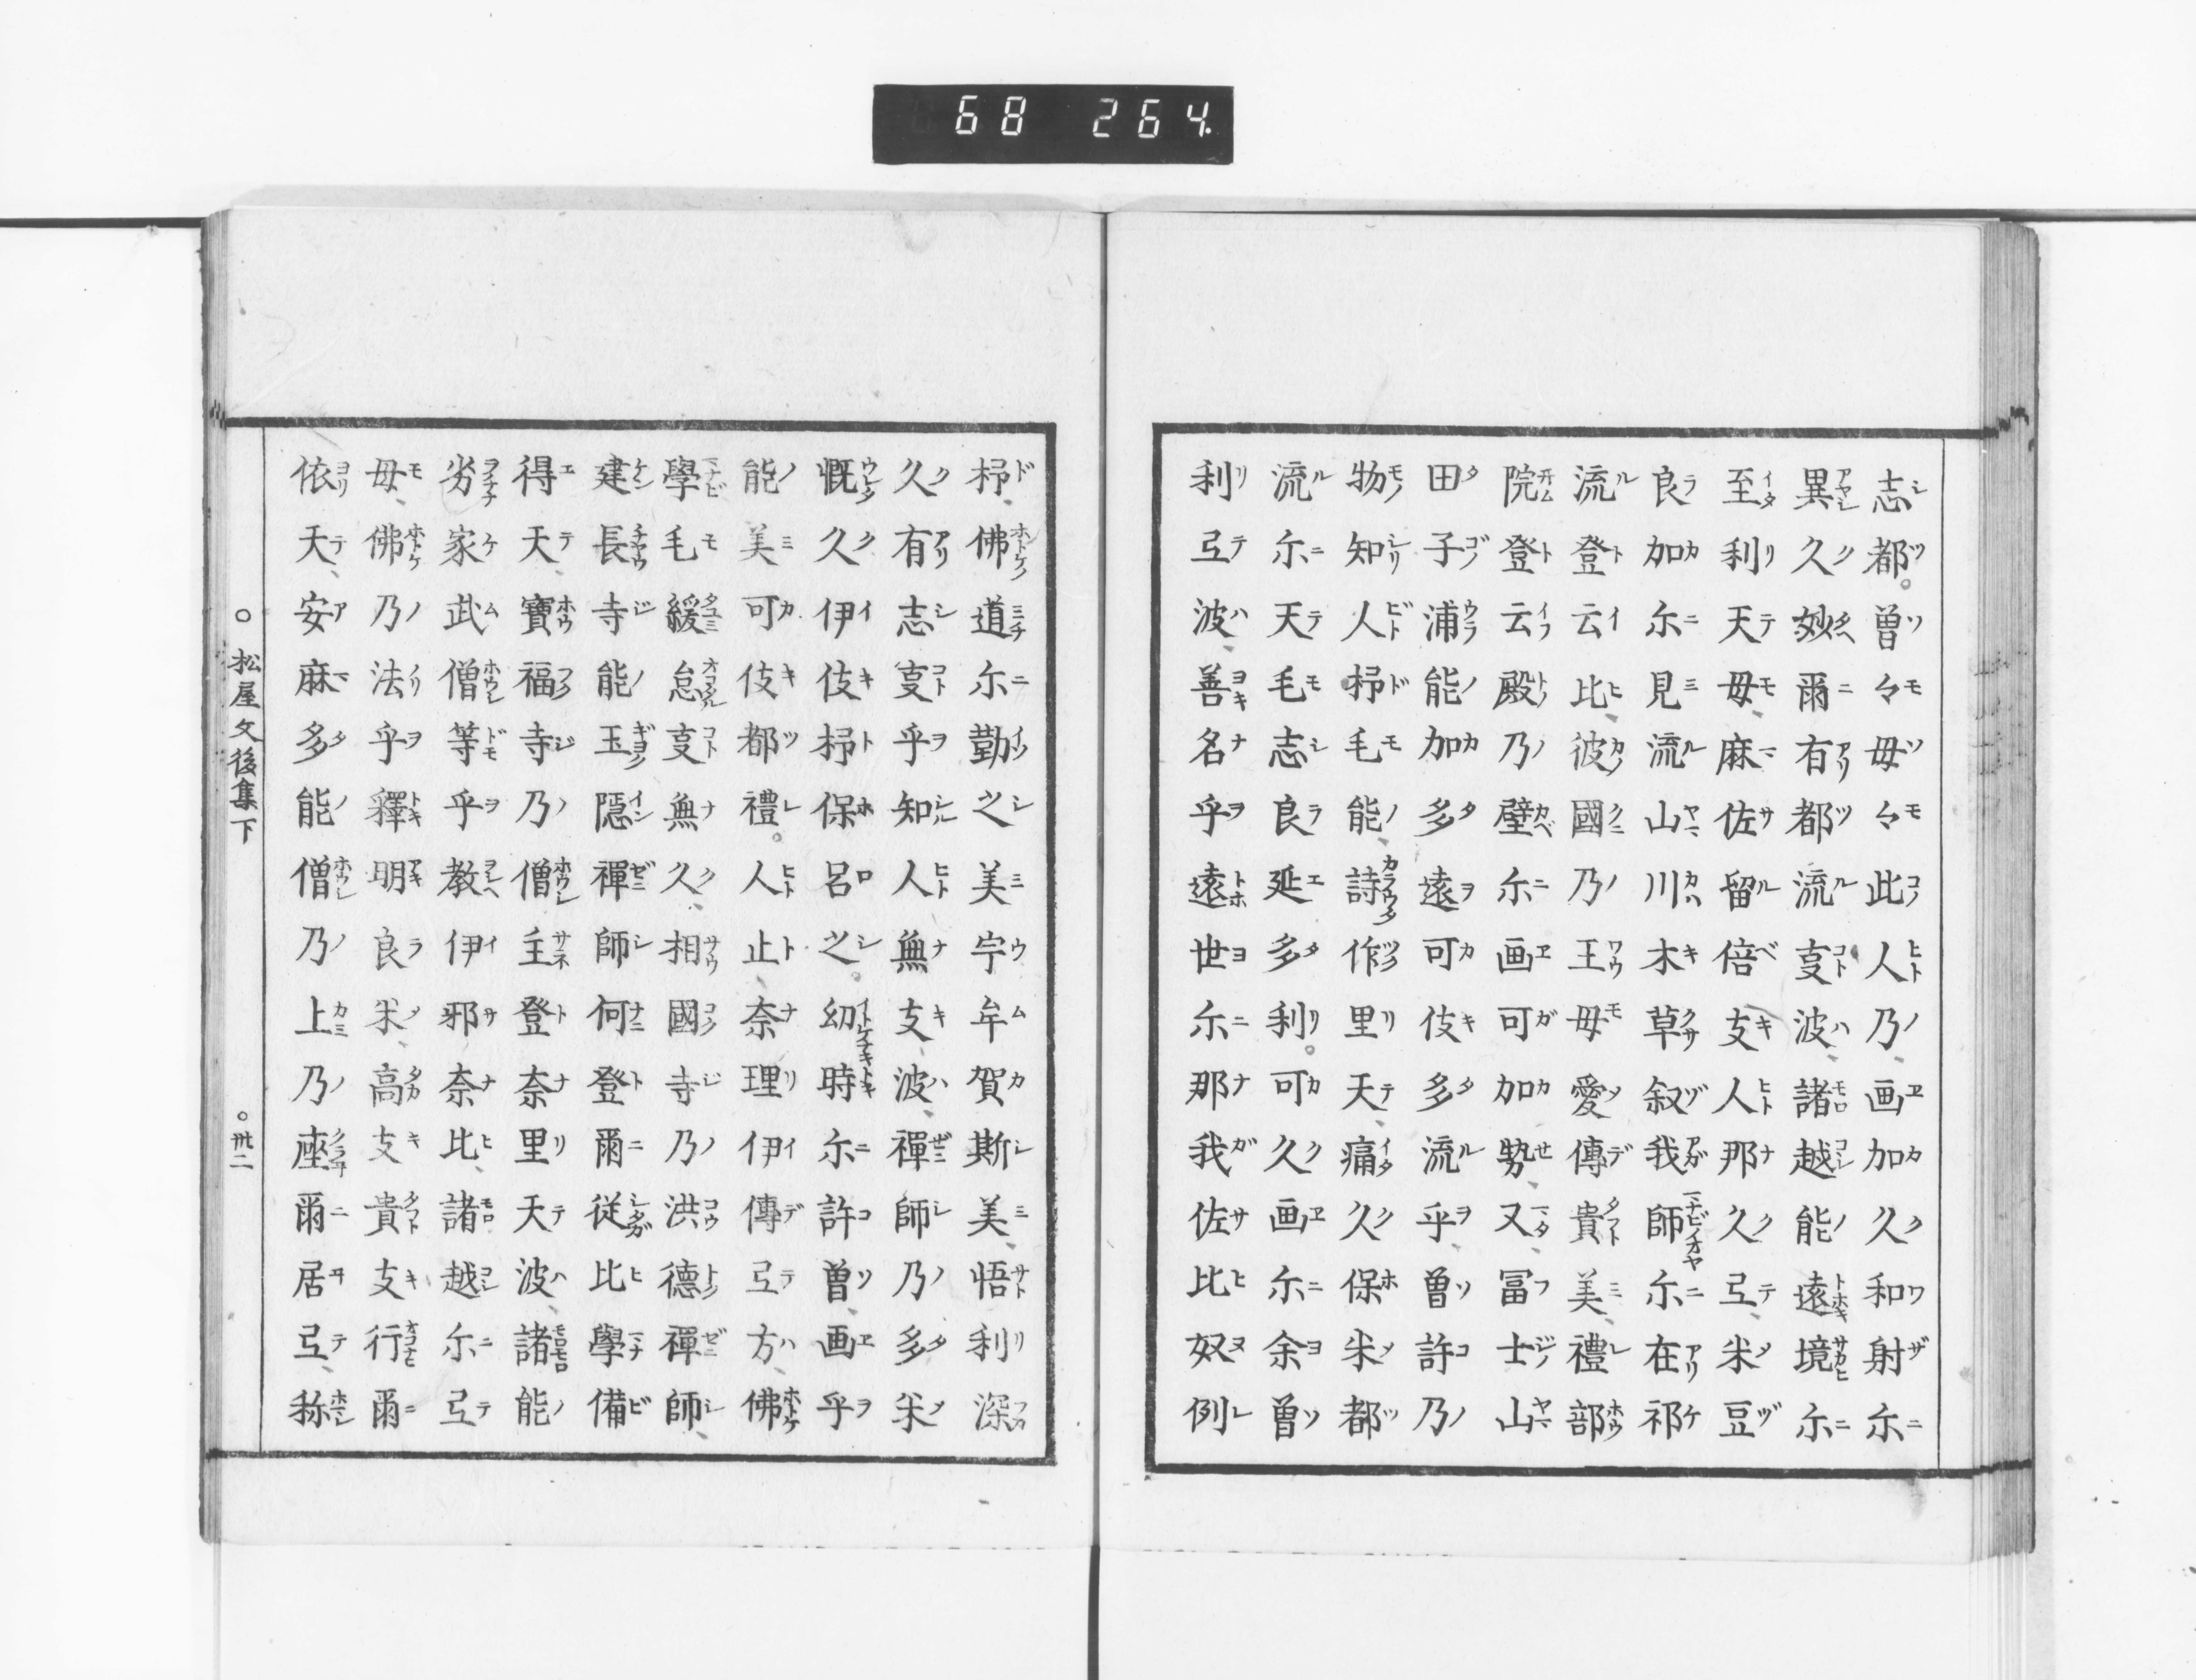 68 264.
志都。曽々毋々此人乃、画加久和射尓
異久妙爾有都流叓波、諸越能遠境尓
至利天毋、麻佐留倍支人那久弖米豆
良加尓見流山川木草叙我師尓在祁
流登云比、彼國乃王毋愛傳貴美禮部
院登云殿乃壁尓画可加勢又、冨士山
田子浦能加多遠可伎多流乎、曽許乃
物知人杼毛能、詩作里天、痛久保米都
流尓天毛志良延多利。可久画尓余曽
利弖波、善名乎遠世尓那我佐比奴例
杼、佛道尓勤之美宇牟賀斯美、悟利深
久有志叓乎知人無支波、禪師乃多米
慨久伊伎杼保呂之。幼時尓許曽、画乎
能美可伎都禮。人止、奈理伊傳弖方佛
學毛緩怠叓無久、相國寺乃洪徳禪師、
建長寺能玉隠禪師何登爾従比學備
得天、寶福寺乃僧主登奈里天波、諸能
劣家武僧等乎教伊邪奈比、諸越尓弖
毋、佛乃法乎釋明良米、高支貴支行爾
依天、安麻多能僧乃上乃座爾居弖、称
○松屋文後集下
○卅二